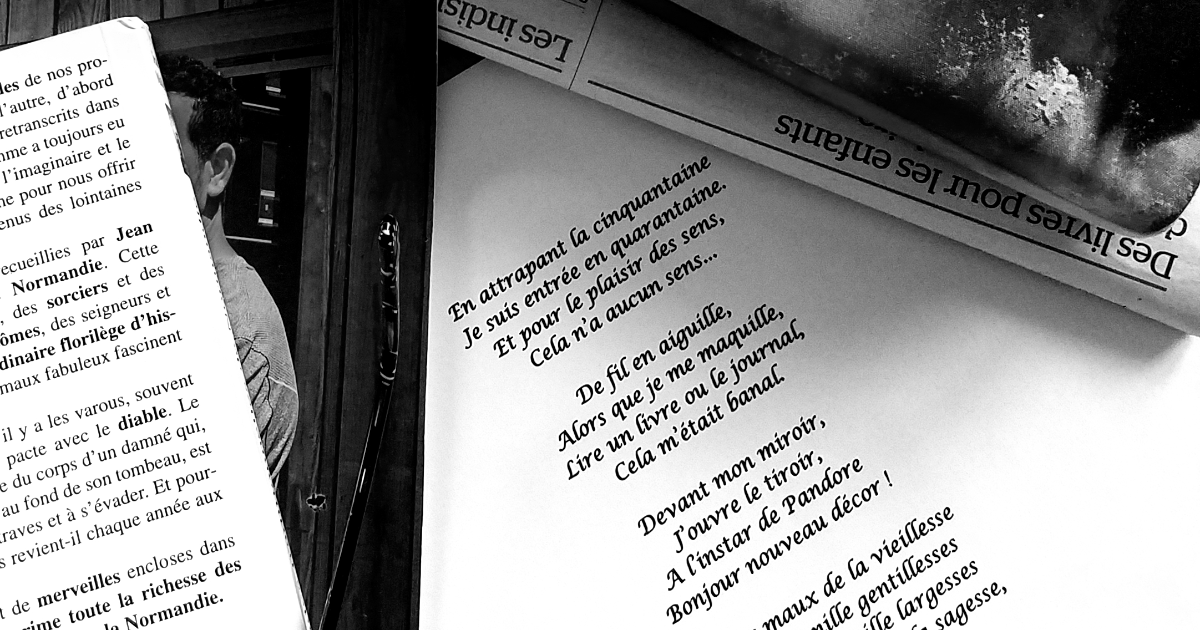 les de nos pro-
l'autre, d'abord
retranscrits dans
mme a toujours eu
l'imaginaire et le
ne pour nous offrir
enus des lointaines
ecueillies par Jean
Normandie. Cette
, des sorciers et des
ômes, des seigneurs et
dinaire florilège d'his-
maux fabuleux fascinent
il y a les varous, souvent
pacte avec le diable. Le
e du corps d'un damné qui,
au fond de son tombeau, est
traves et à s'évader. Et pour-
s revient-il chaque année aux
t de merveilles encloses dans
rime toute la richesse des
la Normandie.
Les indis
Des livres pour les enfants
En attrapant la cinquantaine
Je suis entrée en quarantaine.
Et pour le plaisir des sens,
Cela n'a aucun sens...
De fil en aiguille,
Alors que je me maquille,
Lire un livre ou le journal,
Cela m'était banal.
Devant mon miroir,
J'ouvre le tiroir,
A l'instar de Pandore
Bonjour nouveau décor !
maux de la vieillesse
mille gentillesses
ille largesses
sagesse,